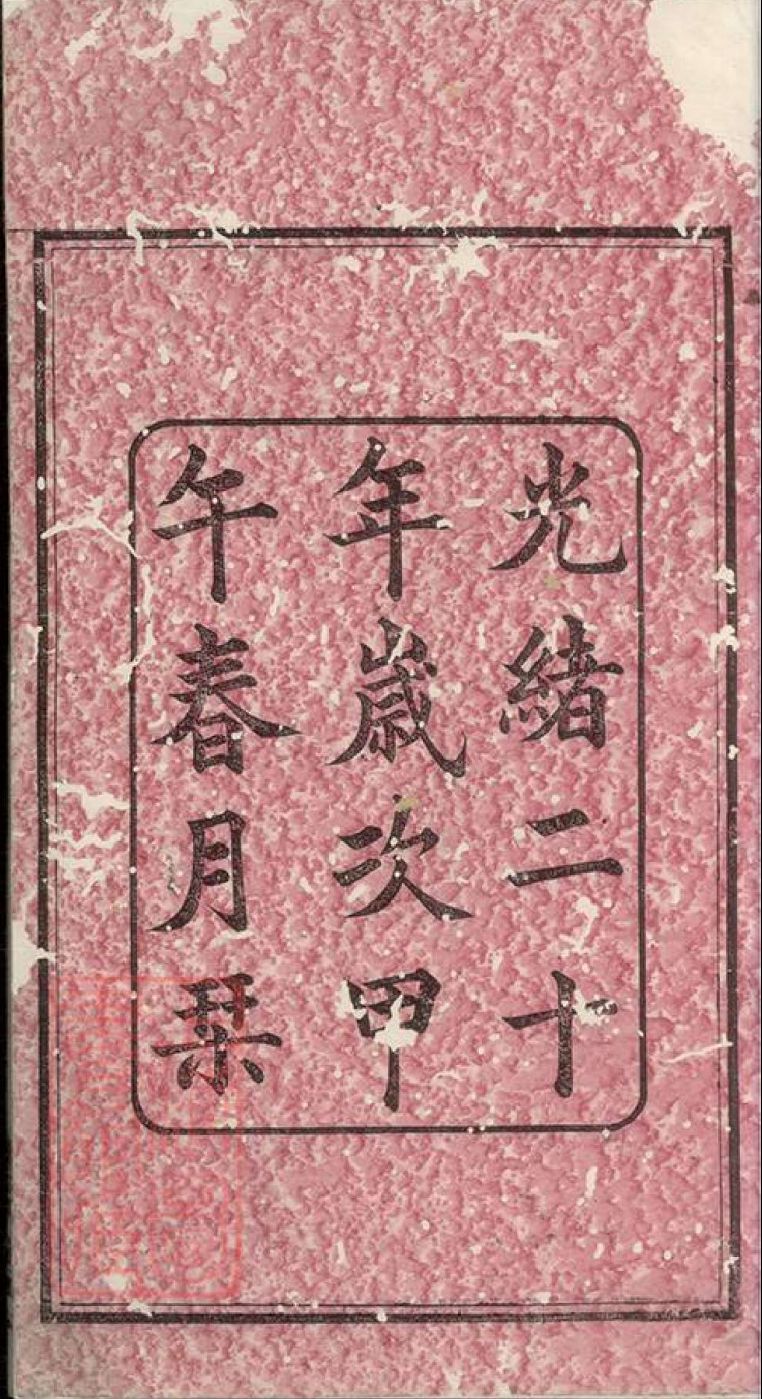 光緒二十
年歲次甲
午春月栞